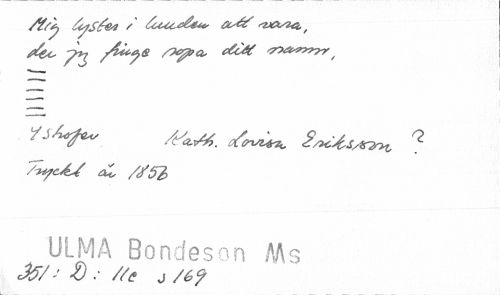 Mig lyster i lunden att vara,
der jag finge ropa ditt namn,
4 strofer Kath. Lovisa Eriksson ?
Tryckt år 1856
ULMA Bondeson Ms
351: D: 11c s 169